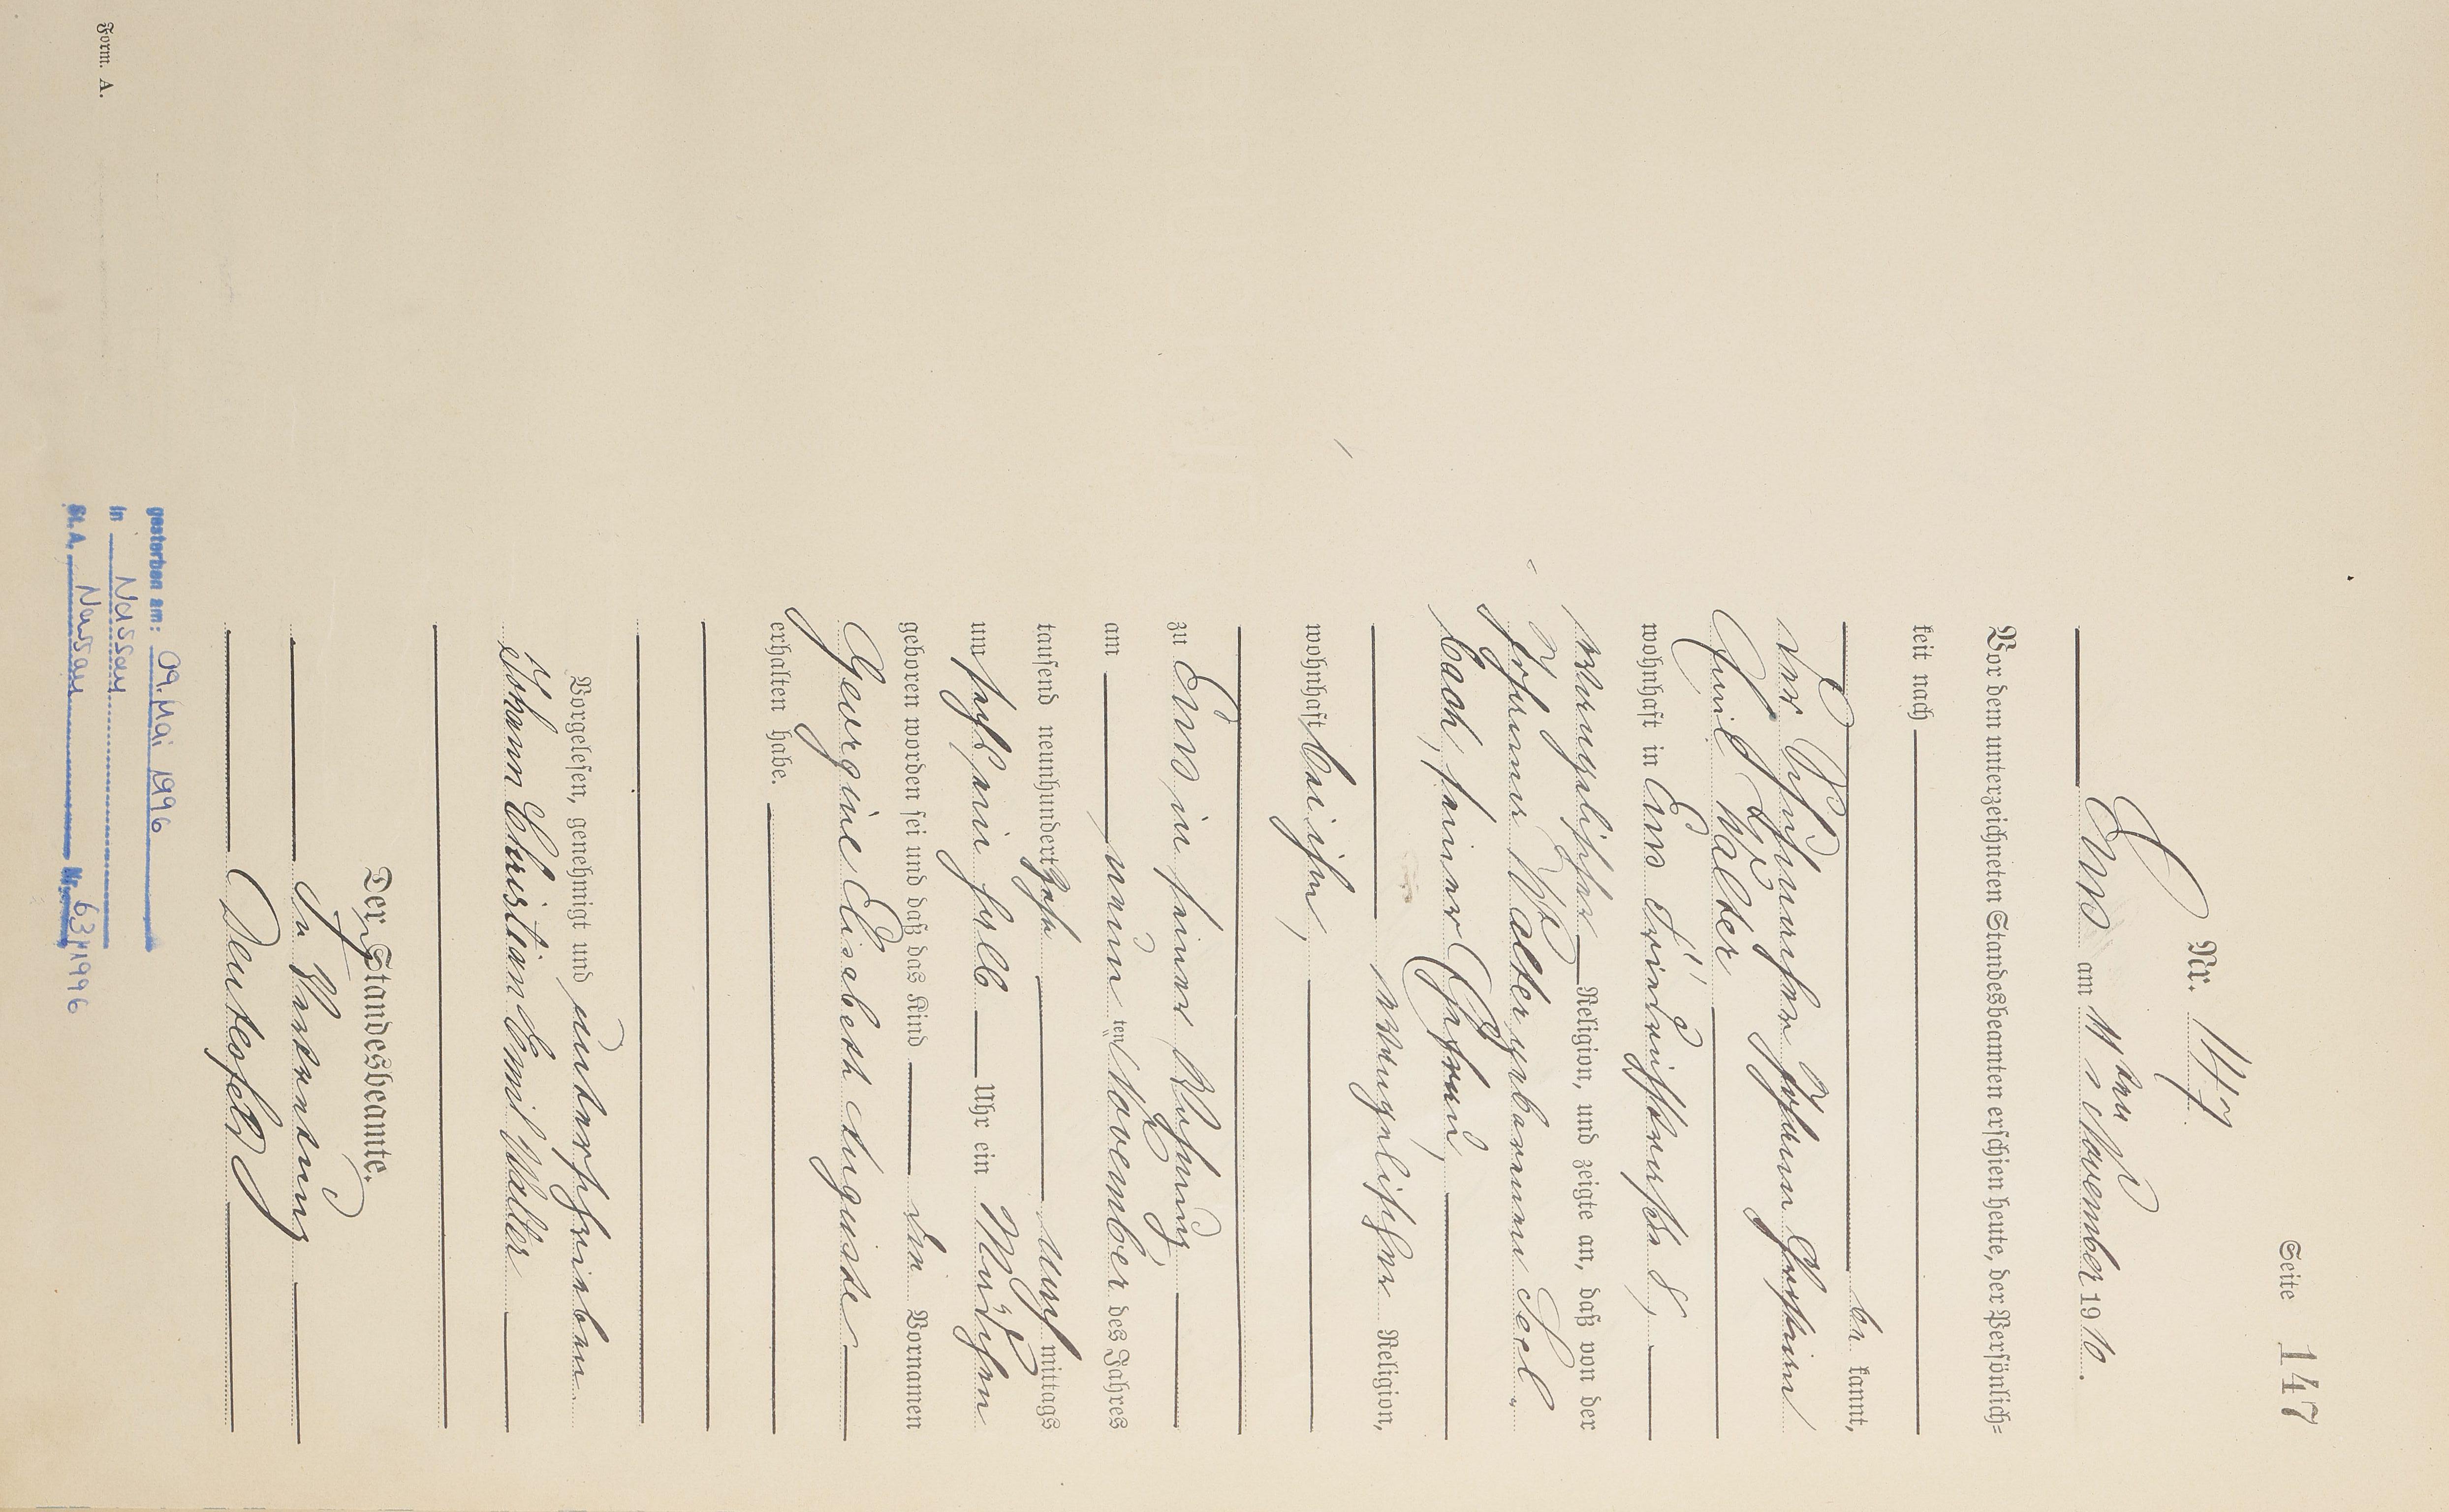 Seite 147
Nr. 147
Ems am 11ten November 1910.
Vor dem unterzeichneten Standesbeamten erschien heute, der Persönlich=
keit nach
be kannt,
der Johann Christian
Emil Walter
wohnhaft in Ems Friedrichstraße 8,
evangelischer Religion, und zeigte an, daß von der
Johanna Walter geborenen Seel-
bach, seiner Ehefrau,
evangelischer Religion,
wohnhaft bei ihm,
zu Ems in seiner Wohnung
am neunten November des Jahres
tausend neunhundert zehn nachmittags
um sechs ein halb Uhr ein Mädchen
geboren worden sei und daß das Kind die Vornamen
Georgine Elisabeth Auguste
erhalten habe.
Vorgelesen, genehmigt und unterschrieben
Johann Christian Emil Walter
Der Standesbeamte.
In Vertretung
gestorben am: 09. Mai 1996
in Nassau
St. A. Nassau Nr. 63/1996
Form. A.